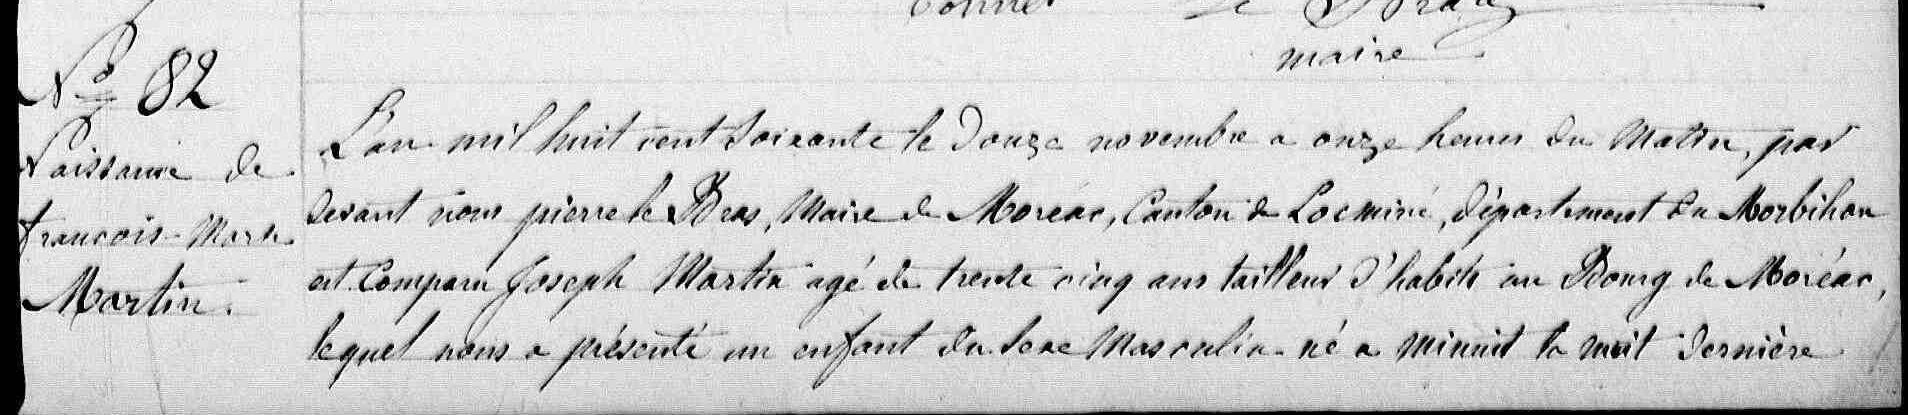 maire
N° 82
Naissance de
françois-Marie
Martin.
L'an mil huit cent soixante le douze novembre a onze heures du Matin, par
devant nous pierre le Bras, Maire de Moréac, Canton de Locminé, département du Morbihan
est Comparu Joseph Martin agé de trente cinq ans tailleur d'habits au Bourg de Moréac,
lequel nous a présenté un enfant du sexe Masculin né a minuit la nuit dernière